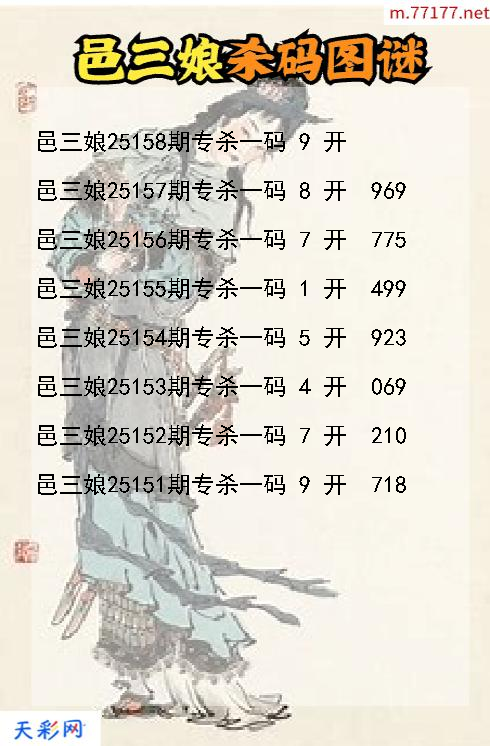 m.77177.net
邑三娘杀码图谜
邑三娘25158期专杀一码 9 开
邑三娘25157期专杀一码 8 开 969
邑三娘25156期专杀一码 7 开 775
邑三娘25155期专杀一码 1 开 499
邑三娘25154期专杀一码 5 开 923
邑三娘25153期专杀一码 4 开 069
邑三娘25152期专杀一码 7 开 210
邑三娘25151期专杀一码 9 开 718
天彩网